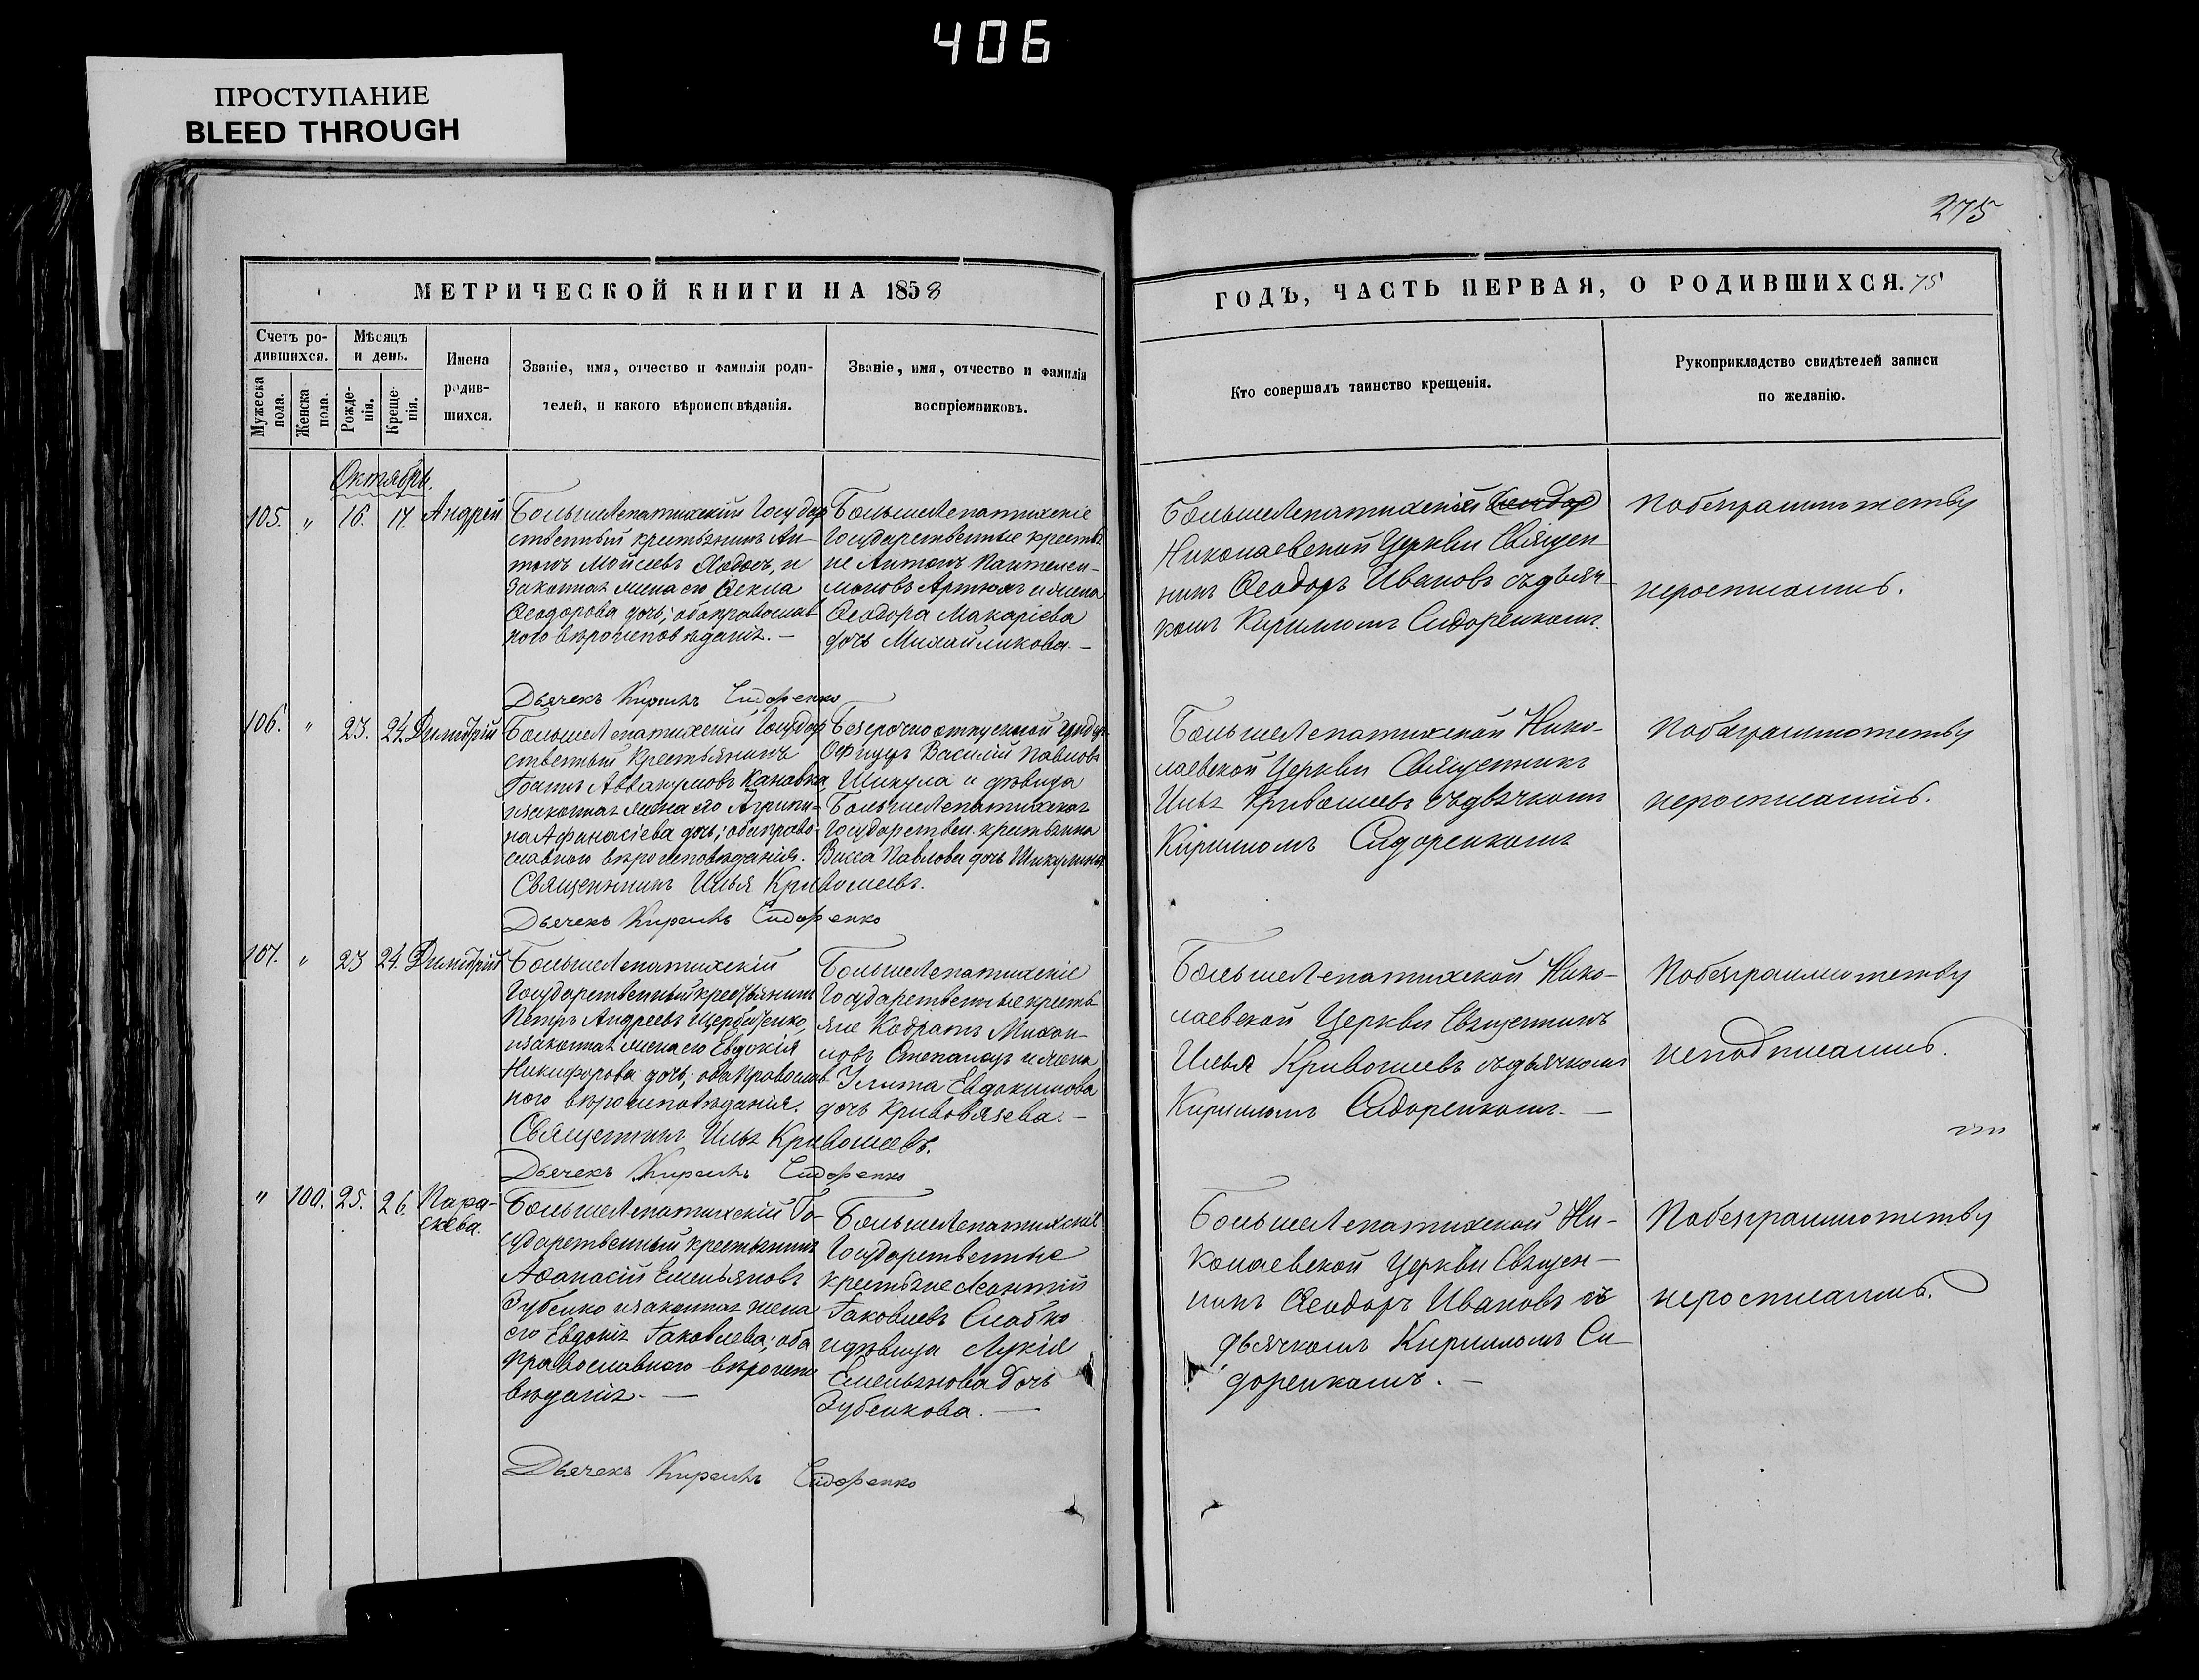 406
ПРОСТУПАНИЕ
BLEED THROUGH
275
МЕТРИЧЕСКОЙ КНИГИ НА 1858
Счетъ ро-
дившихся.
Мужеска
пола.
Женска
пола.
Мѣсяцъ
и день.
Рожде-
нія.
Креще-
нія.
Имена
родив-
шихся.
Званіе, имя, отчество и фамилія роди-
телей, и какого вѣроисповѣданія.
Званіе, имя, отчество и фамилія
воспріемниковъ.
ГОДЪ, ЧАСТЬ ПЕРВАЯ, О РОДИВШИХСЯ. 75
Кто совершалъ таинство крещенія.
Рукоприкладство свидѣтелей записи
по желанію.
Октябрь.
105. " 16. 17 Андрей
БольшеЛепатихскій Государ
ственный крестьянинъ Ан-
тонъ Мойсеевъ и
законная жена его Ѳекла
Ѳеодорова дочь; оба православ
ного вѣроисповѣданія. —
БольшеЛепатихскіе
Государственные крестья
не Антонъ Пантелеи-
моновъ и жена
Ѳеодора Макаріева
дочь Михайликова. —
БольшеЛепатихской
Николаевской Церкви Священ
никъ Ѳеодоръ Ивановъ съ дьяч-
комъ Кириломъ Сидоренкомъ.
По безграмотству
неросписались.
Дьячекъ Кирилъ Сидоренко
106. " 23. 24. Димитрій
БольшеЛепатихскій Государ
ственный Крестьянинъ
Іоанъ Аввакумовъ Канавка
и законная жена его Агрипи-
на Афанасіева дочь; оба право-
славного вѣроисповѣданія.
Безсрочноотпускной Ундер
Офицеръ Василій Павловъ
Шикула и дѣвица
БольшеЛепатихская
Государствен. крестьянка
Васса Павлова дочь Шикулина
БольшеЛепатихской Нико-
лаевской Церкви Священникъ
Илья Кривошеевъ съ дьячкомъ
Кириломъ Сидоренкомъ
По безграмотству
неросписались.
Священникъ Илья Кривошеевъ.
Дьячекъ Кирилъ Сидоренко
107. " 23 24. Димитрій
БольшеЛепатихскій
Государственный крестьянинъ
Петръ Андреевъ Щербаченко,
и законная жена его Евдокія
Никифорова дочь; оба православ
ного вѣроисповѣданія.
БольшеЛепатихскіе
Государственные кресть
яне Кодратъ Михаи-
ловъ Степанец и жена
Улита Евдокимова
дочь Кривовязева. —
БольшеЛепатихской Нико-
лаевской Церкви Священникъ
Илья Кривошеевъ съ дьячкомъ
Кириломъ Сидоренкомъ. —
По безграмотству
неподписались.
Священникъ Илья Кривошеевъ.
Дьячекъ Кирилъ Сидоренко
" 100. 25. 26. Пара-
скева.
БольшеЛепатихскій Го-
сударственный крестьянинъ
Афанасій Емельяновъ
Зубенко и законная жена
его Евдокія Іаковлева; оба
православного вѣроиспо
вѣданія. —
БольшеЛепатихскіе
Государственные
крестьяне Леонтій
Іаковлевъ Слабко
и дѣвица Лукія
Емельянова дочь
Зубенкова. —
БольшеЛепатихской Ни-
колаевской Церкви Священ-
никъ Ѳеодоръ Ивановъ съ
дьячкомъ Кириломъ Си-
доренкомъ. —
По безграмотству
неросписались.
Дьячекъ Кирилъ Сидоренко